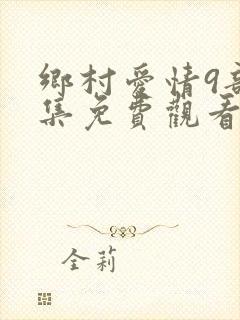 鄉村愛情9部
集免費觀看
全莉